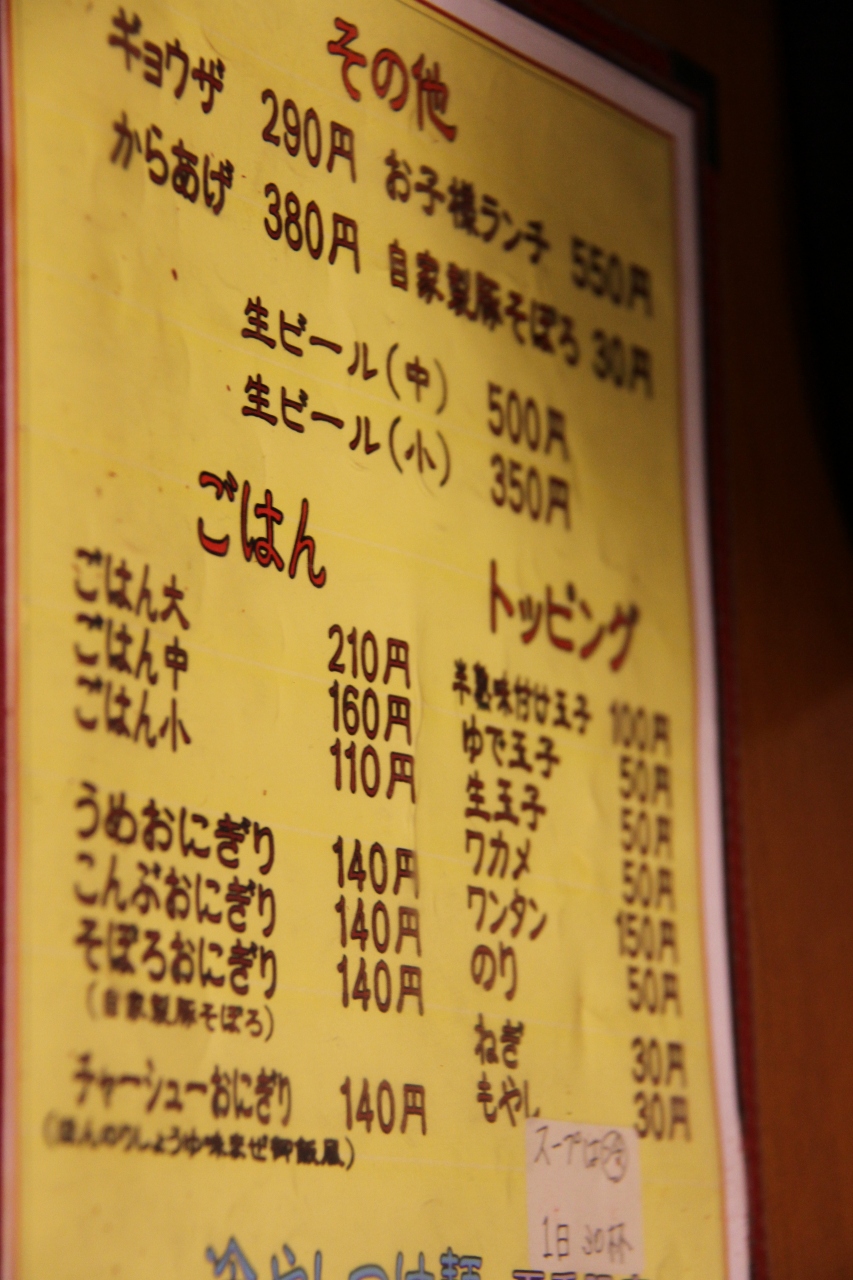 その他
ギョウザ 290円 お子様ランチ 550円
からあげ 380円 自家製豚そぼろ 30円
生ビール(中) 500円
生ビール(小) 350円
ごはん
ごはん大 210円
ごはん中 160円
ごはん小 110円
うめおにぎり 140円
こんぶおにぎり 140円
そぼろおにぎり 140円
(自家製豚そぼろ)
チャーシューおにぎり 140円
(ほんのりしょうゆ味まぜ御飯風)
トッピング
半熟味付け玉子 100円
ゆで玉子 50円
生玉子 50円
ワカメ 50円
ワンタン 150円
のり 50円
ねぎ 30円
もやし 30円
スープは
1日 30杯
冷やしつけ麺